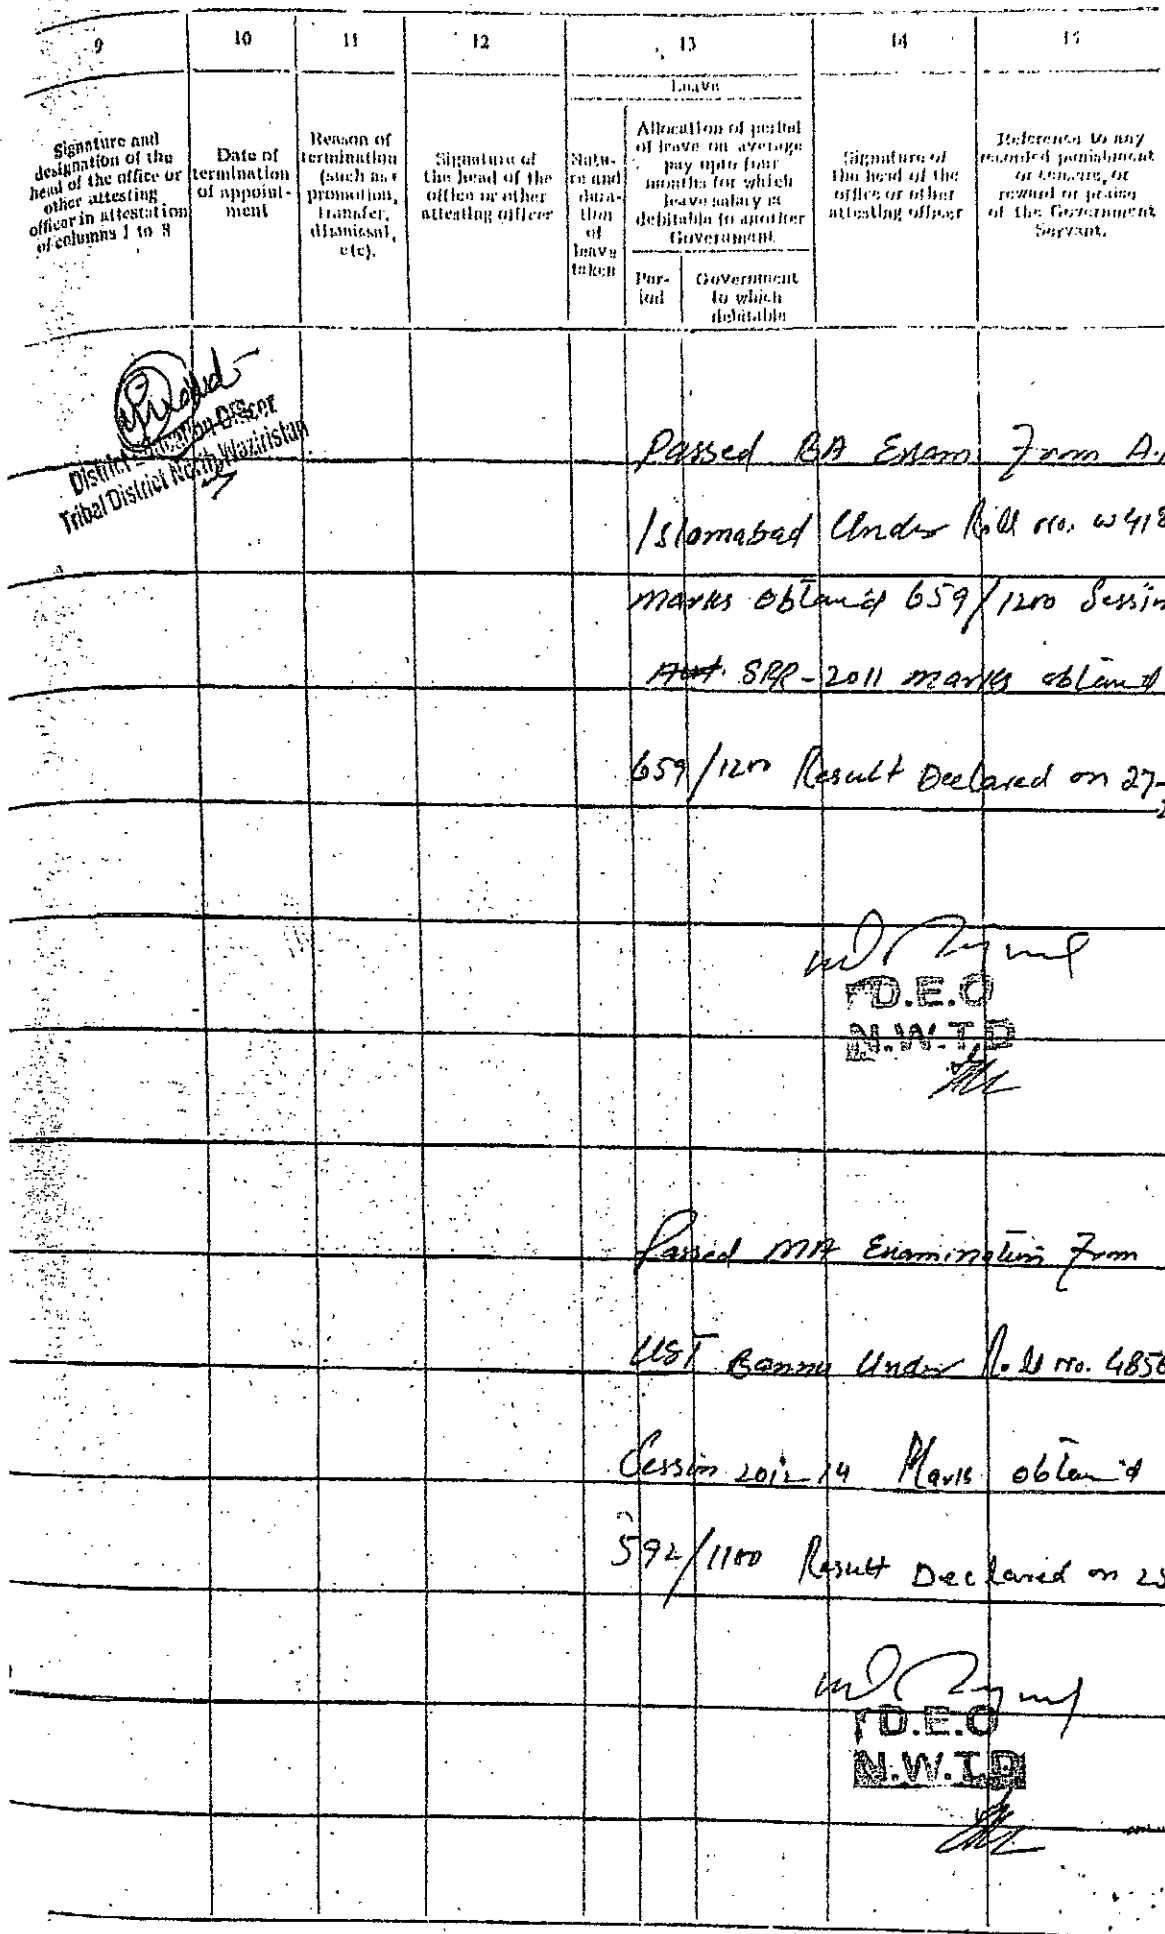 9 10 11 12 13 14 15
Leave
Signature and
designation of the
head of the office or
other attesting
officer in attestation
of columns 1 to 8
Date of
termination
of appoint-
ment
Reason of
termination
(such as
promotion,
transfer,
dismissal,
etc).
Signature of
the head of the
office or other
attesting officer
Natu-
re and
dura-
tion
of
leave
taken
Allocation of period
of leave on average
pay upto four
months for which
leave salary is
debitable to another
Government
Per-
iod
Government
to which
debitable
Signature of
the head of the
office or other
attesting officer
Reference to any
recorded punishment
or censure, or
reward or praise
of the Government
Servant.
District Education Officer
Tribal District North Waziristan
Passed BA Exam From A.
Islamabad Under Roll no. W418
marks obtained 659/1200 Session
SPR-2011 marks obtained
659/1200 Result Declared on 27-
D.E.O
N.W.T.D
Passed MA Examination From
UST Bannu Under Roll no. 4856
Session 2012-14 Marks obtained
592/1100 Result Declared on 25
D.E.O
N.W.T.D